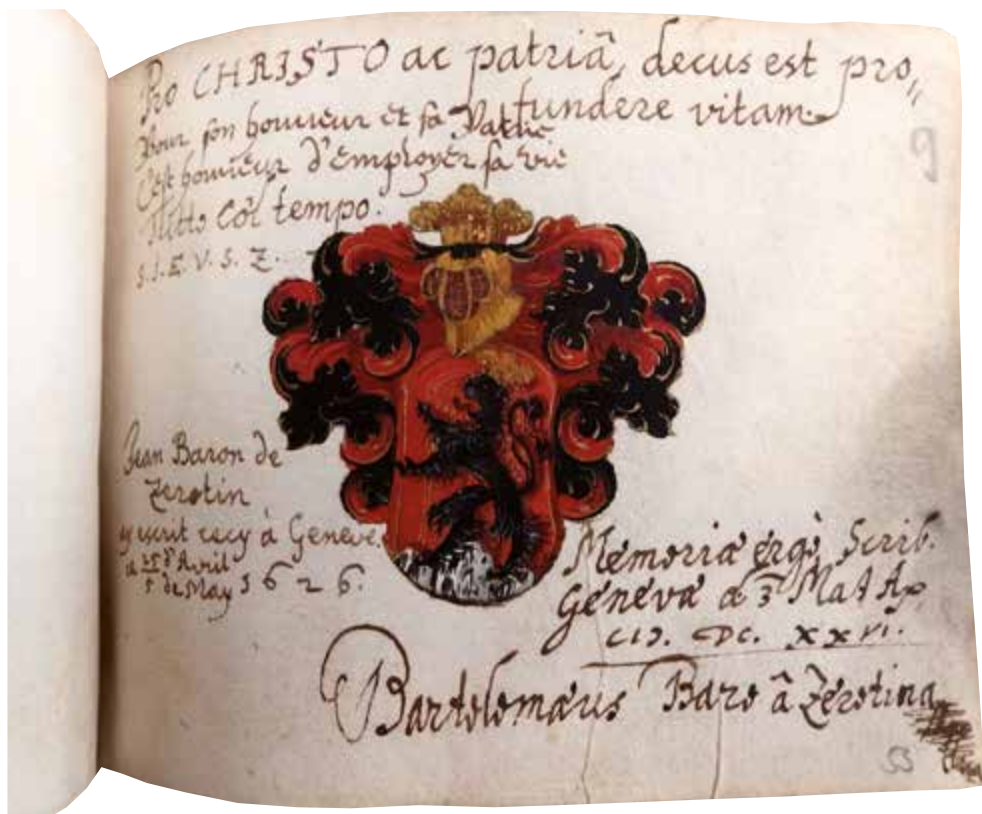 Pro CHRISTO ac patriâ, decus est pro„
fundere vitam
Pour son honneur et sa Patrie
C'est honneur d'employer sa vie
Tutto col tempo.
S. J. E. V. S. Z.
9
Jean Baron de
Zerotin
escrit cecy à Geneve.
a 25 d'Avril
5 de May 1626.
Memoriæ ergò, Scrib.
Genevæ
CIƆ. DC. XXVI.
Bartolomæus Baro â Zerotina
53